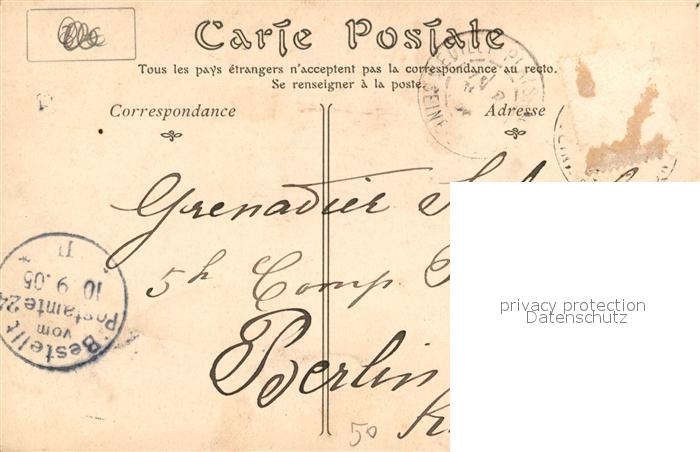 Carte Postale
Tous les pays étrangers n'acceptent pas la correspondance au recto.
Se renseigner à la poste.
Correspondance
Adresse
NEUILLY-PL
SEINE
Grenadier
5h Comp
Berlin
Bestellt
vom
Postamte 24
10 9.05
50
privacy protection
Datenschutz